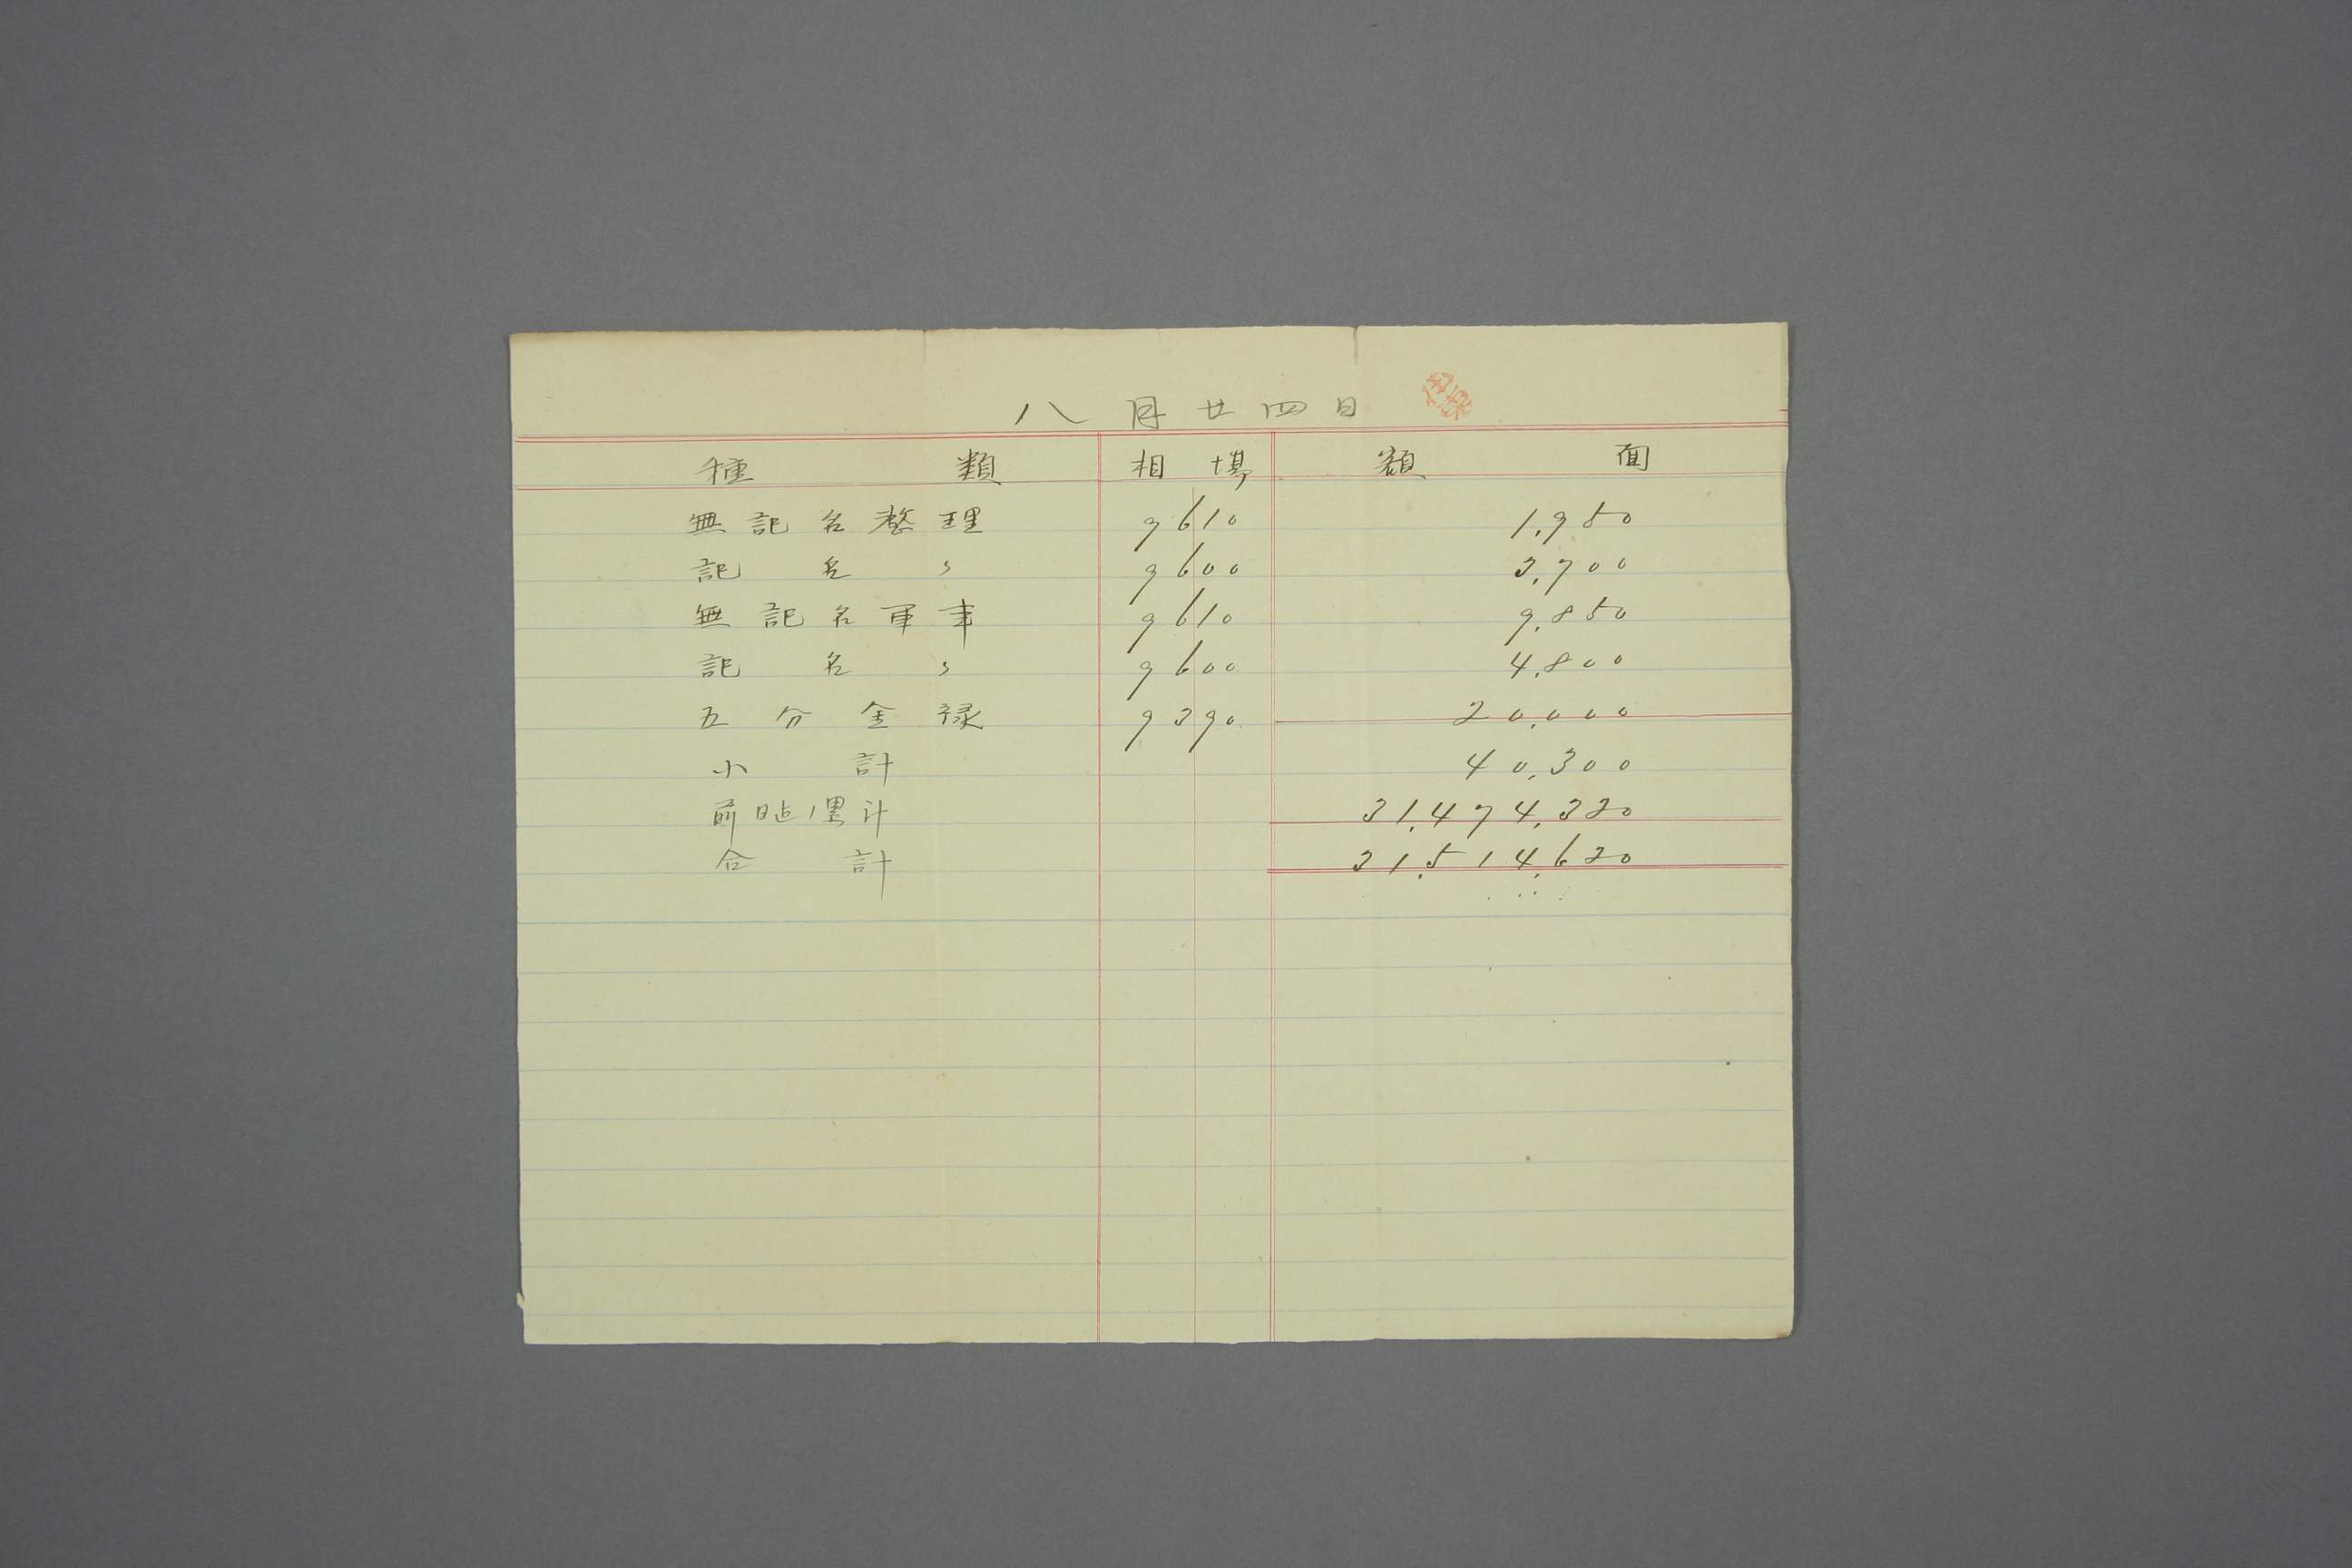 八月廿四日
種類 相場 額面
無記名整理 9610 1,950
記名〃 9600 3,700
無記名軍事 9610 9,850
記名〃 9600 4,800
五分金禄 9390 20,000
小計 40,300
前日迄累計 31,474,320
合計 31,514,620